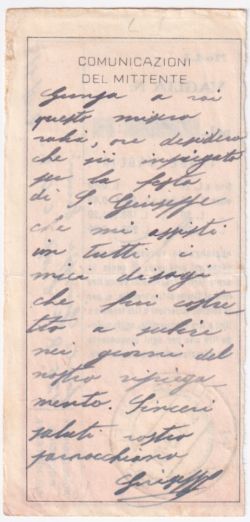 COMUNICAZIONI
DEL MITTENTE
Giunga a voi
questo misero
vaglia, ove desidero
che sii impiegato
per la festa
di S. Giuseppe
che mi assistì
in tutti i
miei disagi
che fui costre
tto a subire
nei giorni del
nostro ripiega
mento. Sinceri
saluti vostro
parrocchiano
Giuseppe